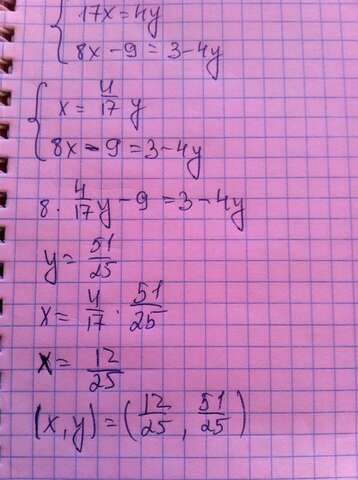 17x = 4y
8x - 9 = 3 - 4y
x = 4/17 y
8x - 9 = 3 - 4y
8 · 4/17 y - 9 = 3 - 4y
y = 51/25
x = 4/17 · 51/25
x = 12/25
(x, y) = (12/25, 51/25)